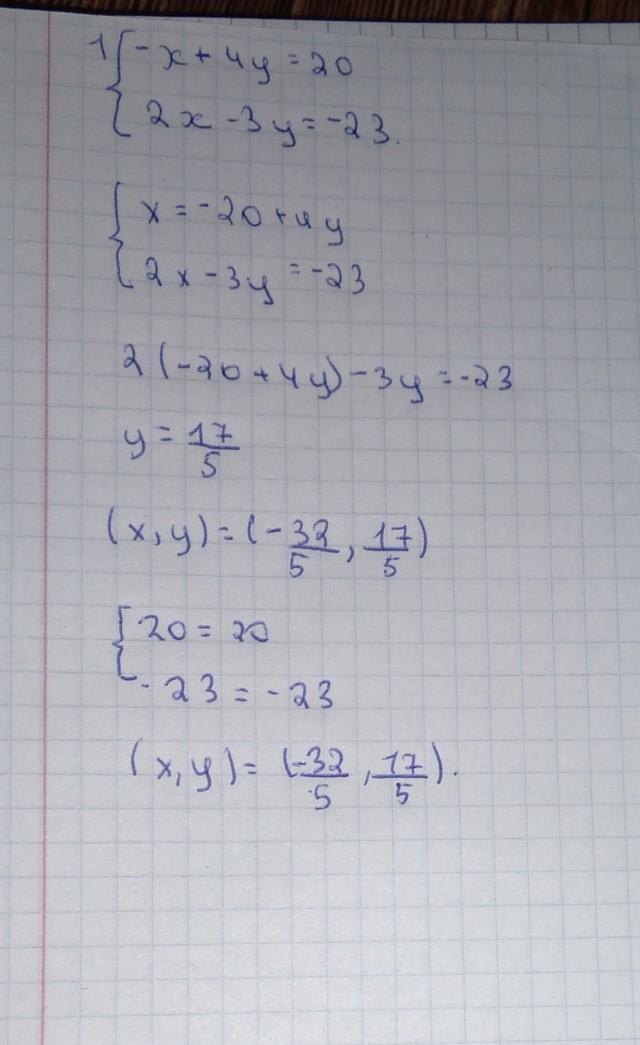 1 { -x + 4y = 20
2x - 3y = -23.
{ x = -20 + 4y
2x - 3y = -23
2(-20 + 4y) - 3y = -23
y = 17/5
(x, y) = (-32/5, 17/5)
{ 20 = 20
-23 = -23
(x, y) = (-32/5, 17/5).